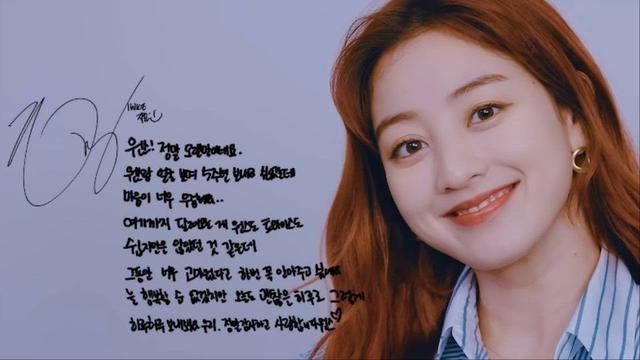 TWICE
지효
정말 오랜만이네요.
얼굴 보며 싶었는데
마음이 너무
여기까지 달려오는 게 원스도 트와이스도
쉽지만은 않았던 것 같은데
그동안 너무 고마웠다고 하면서 꼭 안아주고 싶네요
늘 행복할 수 없겠지만 오늘도 괜찮은 하루로 그렇게
하루하루 보내봐요 우리. 정말 감사하고 사랑합니다 원스♡